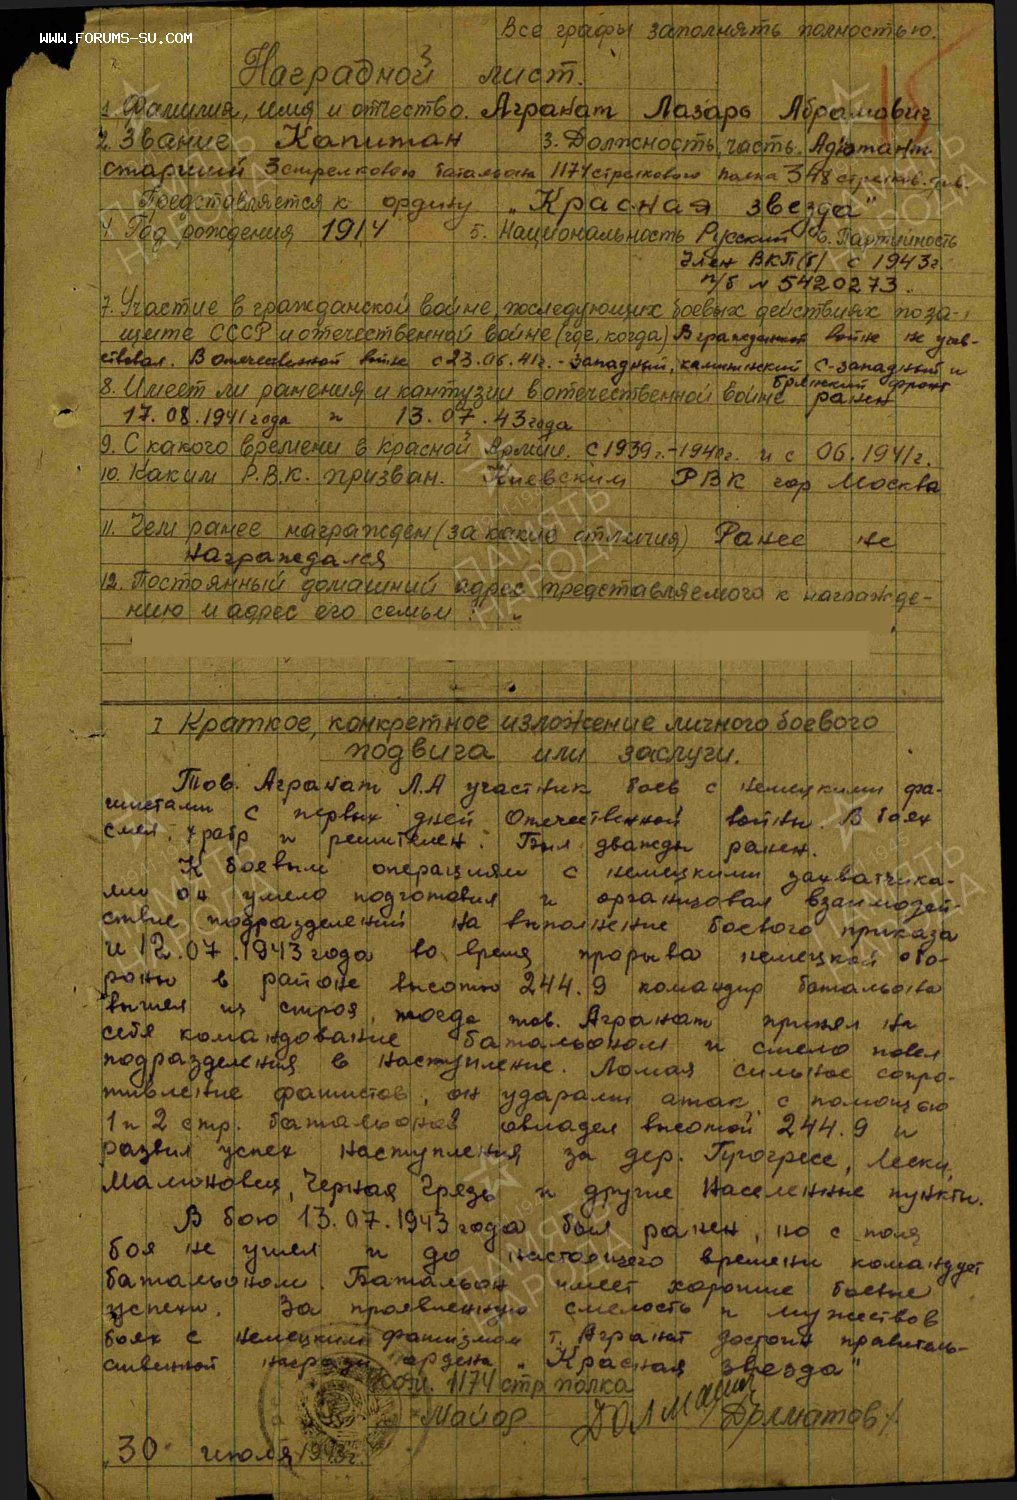 www.forums-su.com
Все графы заполнять полностью.
15
Наградной лист.
1. Фамилия, имя и отчество. Агранат Лазарь Абрамович
2. Звание Капитан 3. Должность, часть. Адютант
старший 3 стрелкового баталиона 1174 стрелкового полка 348 стрелков. див.
Представляется к ордену "Красная звезда"
4. Год рождения 1914 5. Национальность Русский 6. Партийность
Член ВКП(б) с 1943г.
п/б № 5420273.
7. Участие в гражданской войне, последующих боевых действиях по за-
щите СССР и отечественной войне (где, когда) В гражданской войне не учав-
ствовал. В отечественной войне с 23.06.41г. - Западный, калининский, С-западный и
брянский фронт
8. Имеет ли ранения и кантузии в отечественной войне ранен
17.08.1941 года и 13.07.43 года
9. С какого времени в Красной Армии. с 1939г. - 1940г. и с 06.1941г.
10. Каким Р.В.К. призван. Киевским РВК гор Москва
11. Чем ранее награжден (за какие отличия) Ранее не
награждался
12. Постоянный домашний адрес представляемого к награжде-
нию и адрес его семьи:
I Краткое, конкретное изложение личного боевого
подвига или заслуги.
Тов. Агранат Л.А участник боев с немецкими фа-
шистами с первых дней Отечественной войны. В боях
смел, храбр и решителен. Был дважды ранен.
К боевым операциям с немецкими захватчика-
ми он умело подготовил и организовал взаимодей-
ствие подразделений на выполнение боевого приказа
и 12.07.1943 года во время прорыва немецкой обо-
роны в районе высоты 244.9 командир батальона
вышел из строя, тогда тов. Агранат принял на
себя командование батальоном и смело повел
подразделения в наступление. Ломая сильное сопро-
тивление фашистов, он ударами атак с помощью
1 и 2 стр. батальонов овладел высотой 244.9 и
развил успех наступления за дер. Прогресс, Лески,
Малиновец, Черная Грязь и другие населенные пункты.
В бою 13.07.1943 года был ранен, но с поля
боя не ушел и до настоящего времени командует
батальоном. Батальон имеет хорошие боевые
успехи. За проявленную смелость и мужество в
боях с немецким фашизмом т. Агранат достоин правитель-
ственной награды ордена "Красная звезда"
Ком. 1174 стр полка
Майор Долматов
30 июля 1943г.
ПАМЯТЬ
НАРОДА
1941-1945